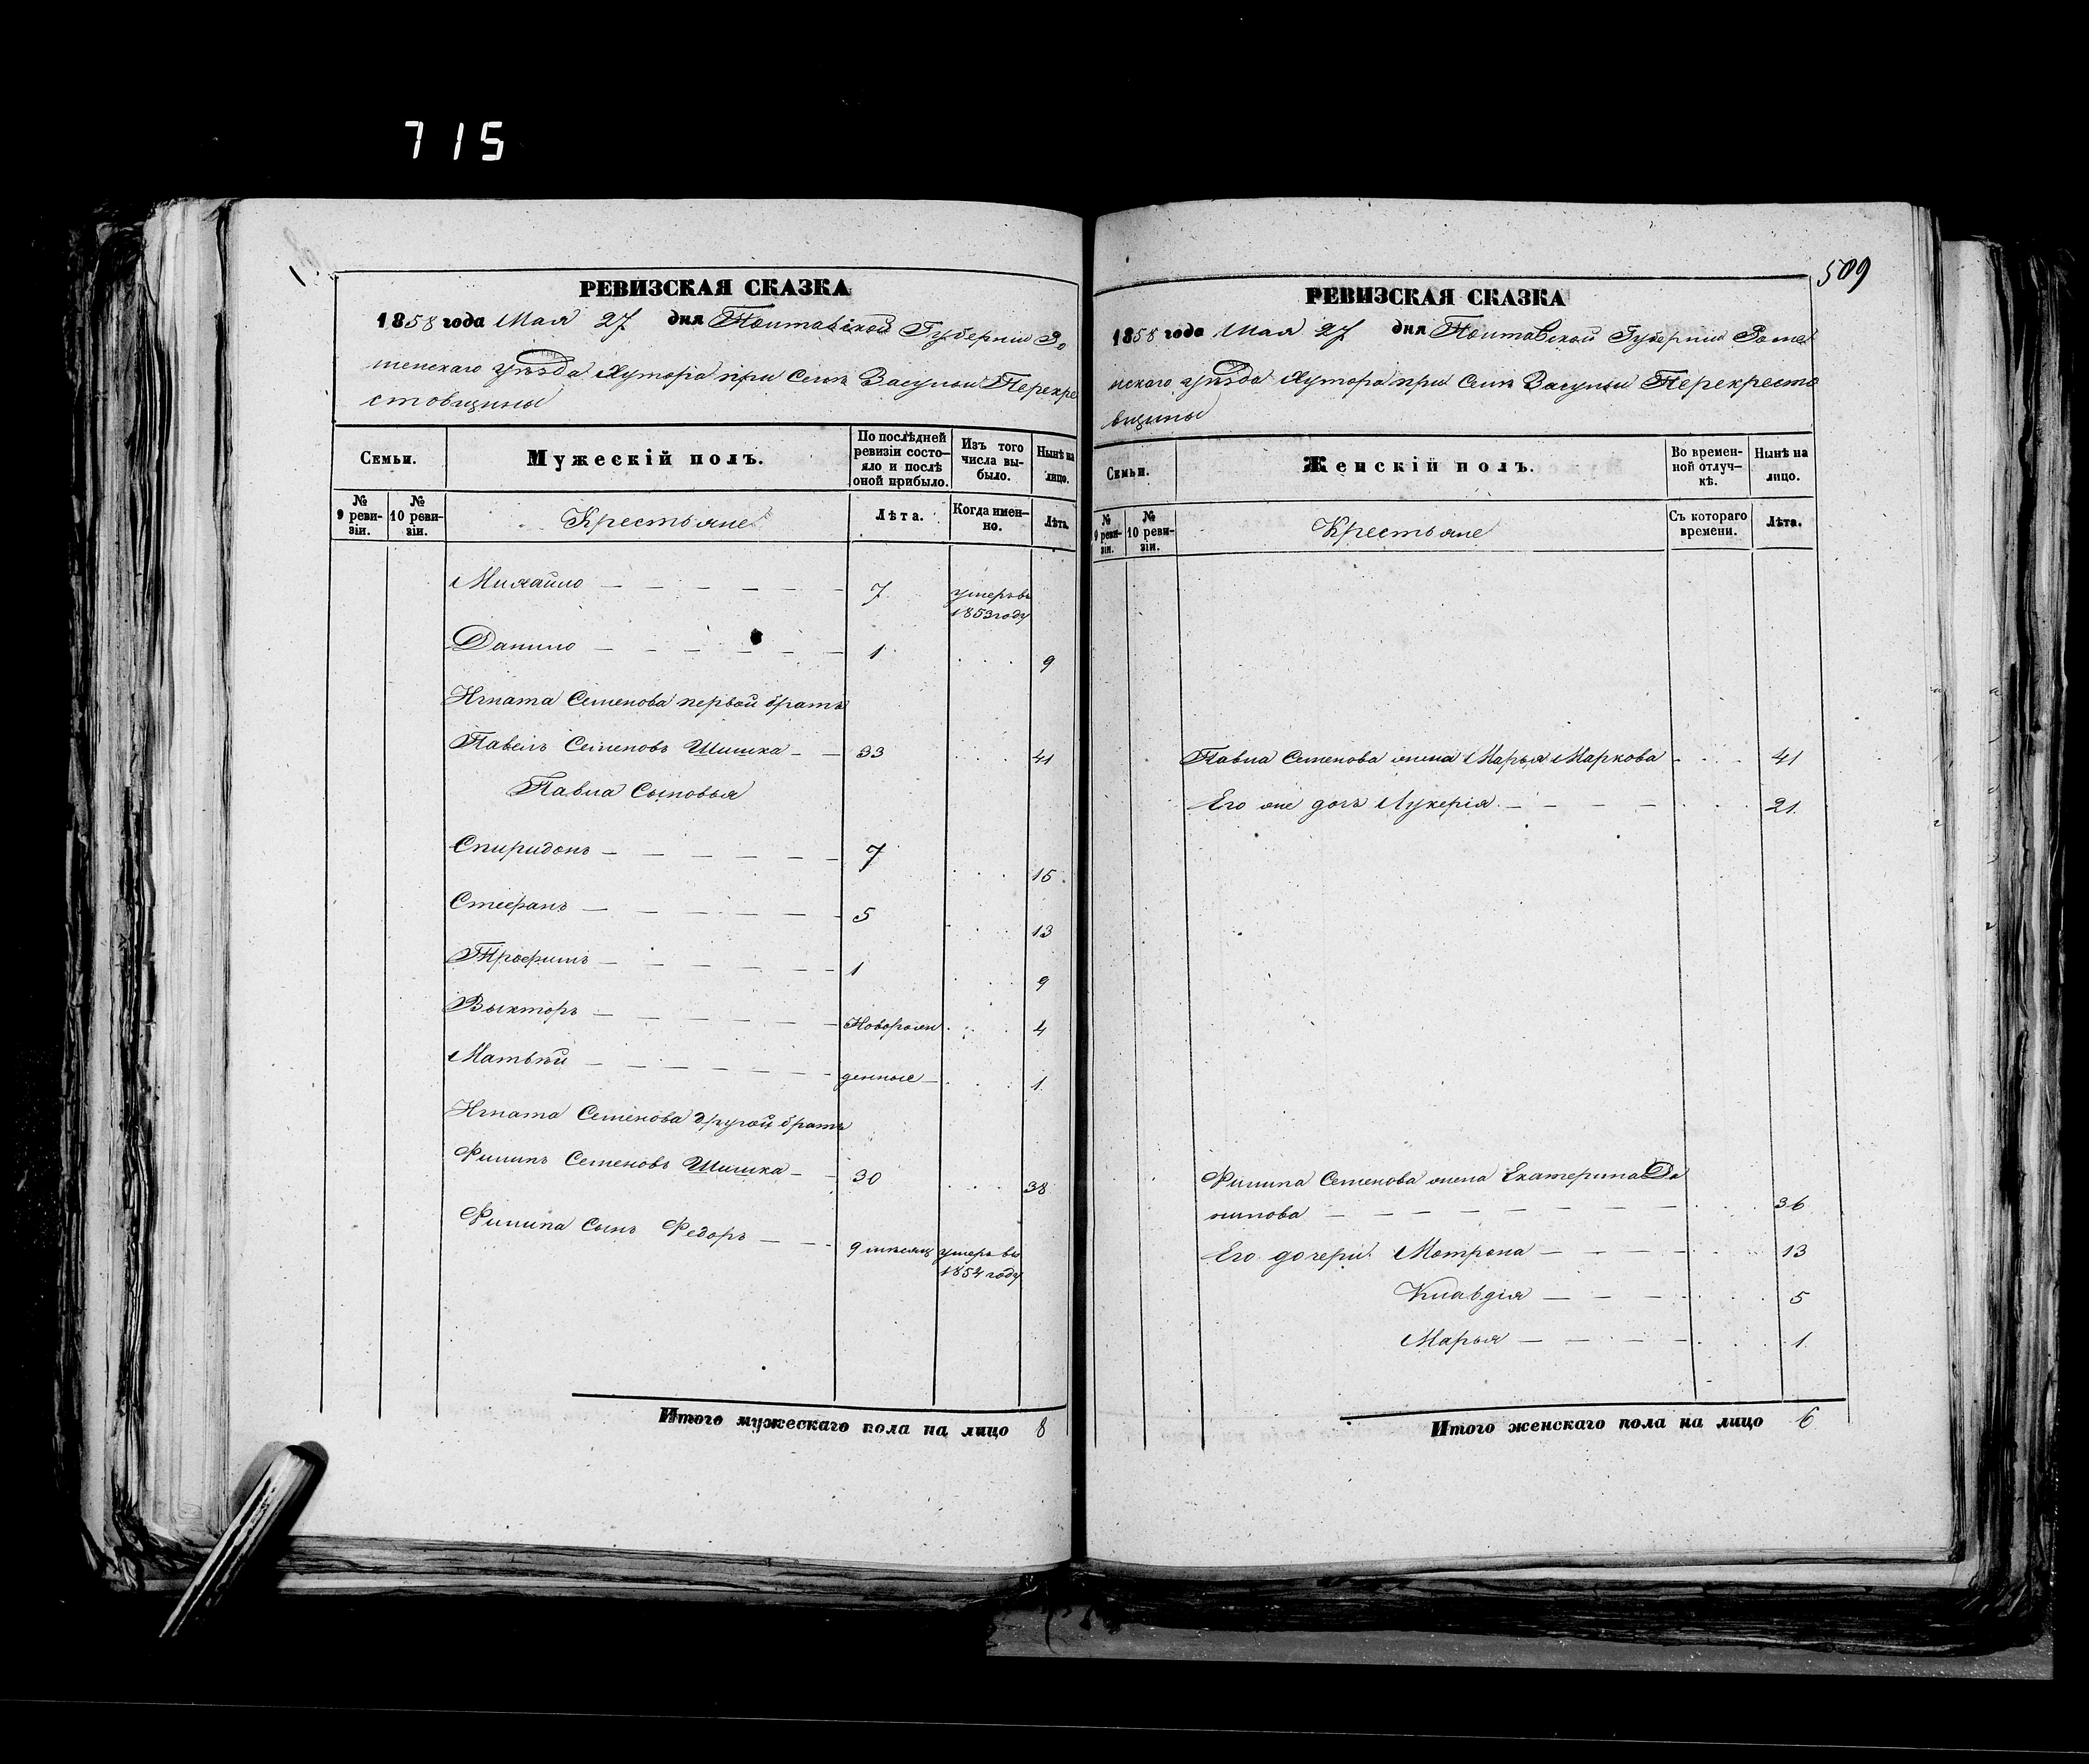 715
РЕВИЗСКАЯ СКАЗКА
1858 года Мая 27 дня Полтавской Губернии Ро
менскаго уѣзда Хутора при Селѣ Засульи Перекре
стовщины
Семьи.
Мужескій полъ.
По послѣдней ревизіи состо–яло и послѣ оной прибыло.
Изъ того числа вы–было.
Нынѣ на лицо.
№ 9 реви–зіи.
№ 10 реви–зіи.
Крестьяне
Лѣта.
Когда имен–но.
Лѣта.
Михайло — — — — — 7 умеръ въ
1853 году
Данило — — — — — 1 . . . 9
Игната Семенова первой братъ
Павелъ Семеновъ Шишка — — 33 . . . 41
Павла Сыновья
Спиридонъ — — — — — 7 . . . 15
Стефанъ — — — — — 5 . . . 13
Трофимъ — — — — — 1 . . . 9
Выкторъ — — — — — Новорож . . . 4
Матвѣй — — — — — денные . . . 1
Игната Семенова другой братъ
Филипъ Семеновъ Шишка — — 30 . . . 38
Филипа Сынъ Федоръ — — 9 мѣсяц умеръ въ
1854 году
Итого мужескаго пола на лицо 8
509
РЕВИЗСКАЯ СКАЗКА
1858 года Мая 27 дня Полтавской Губернии Роме
нскаго уѣзда Хутора при Селѣ Засульи Перекресто
вщины
Семьи.
Женскій полъ.
Во времен–ной отлуч–кѣ.
Нынѣ на лицо.
№ 9 реви–зіи.
№ 10 реви–зіи.
Крестьяне
Съ котораго времени.
Лѣта.
Павла Семенова жена Марья Маркова . . . 41
Его же дочь Лукерія — — — — . . . 21
Филипа Семенова жена Екатерина Да
нилова — — — — — — — . . . 36
Его дочери Мотрона — — — — . . . 13
Клавдія — — — . . . 5
Марья — — — — . . . 1
Итого женскаго пола на лицо 6